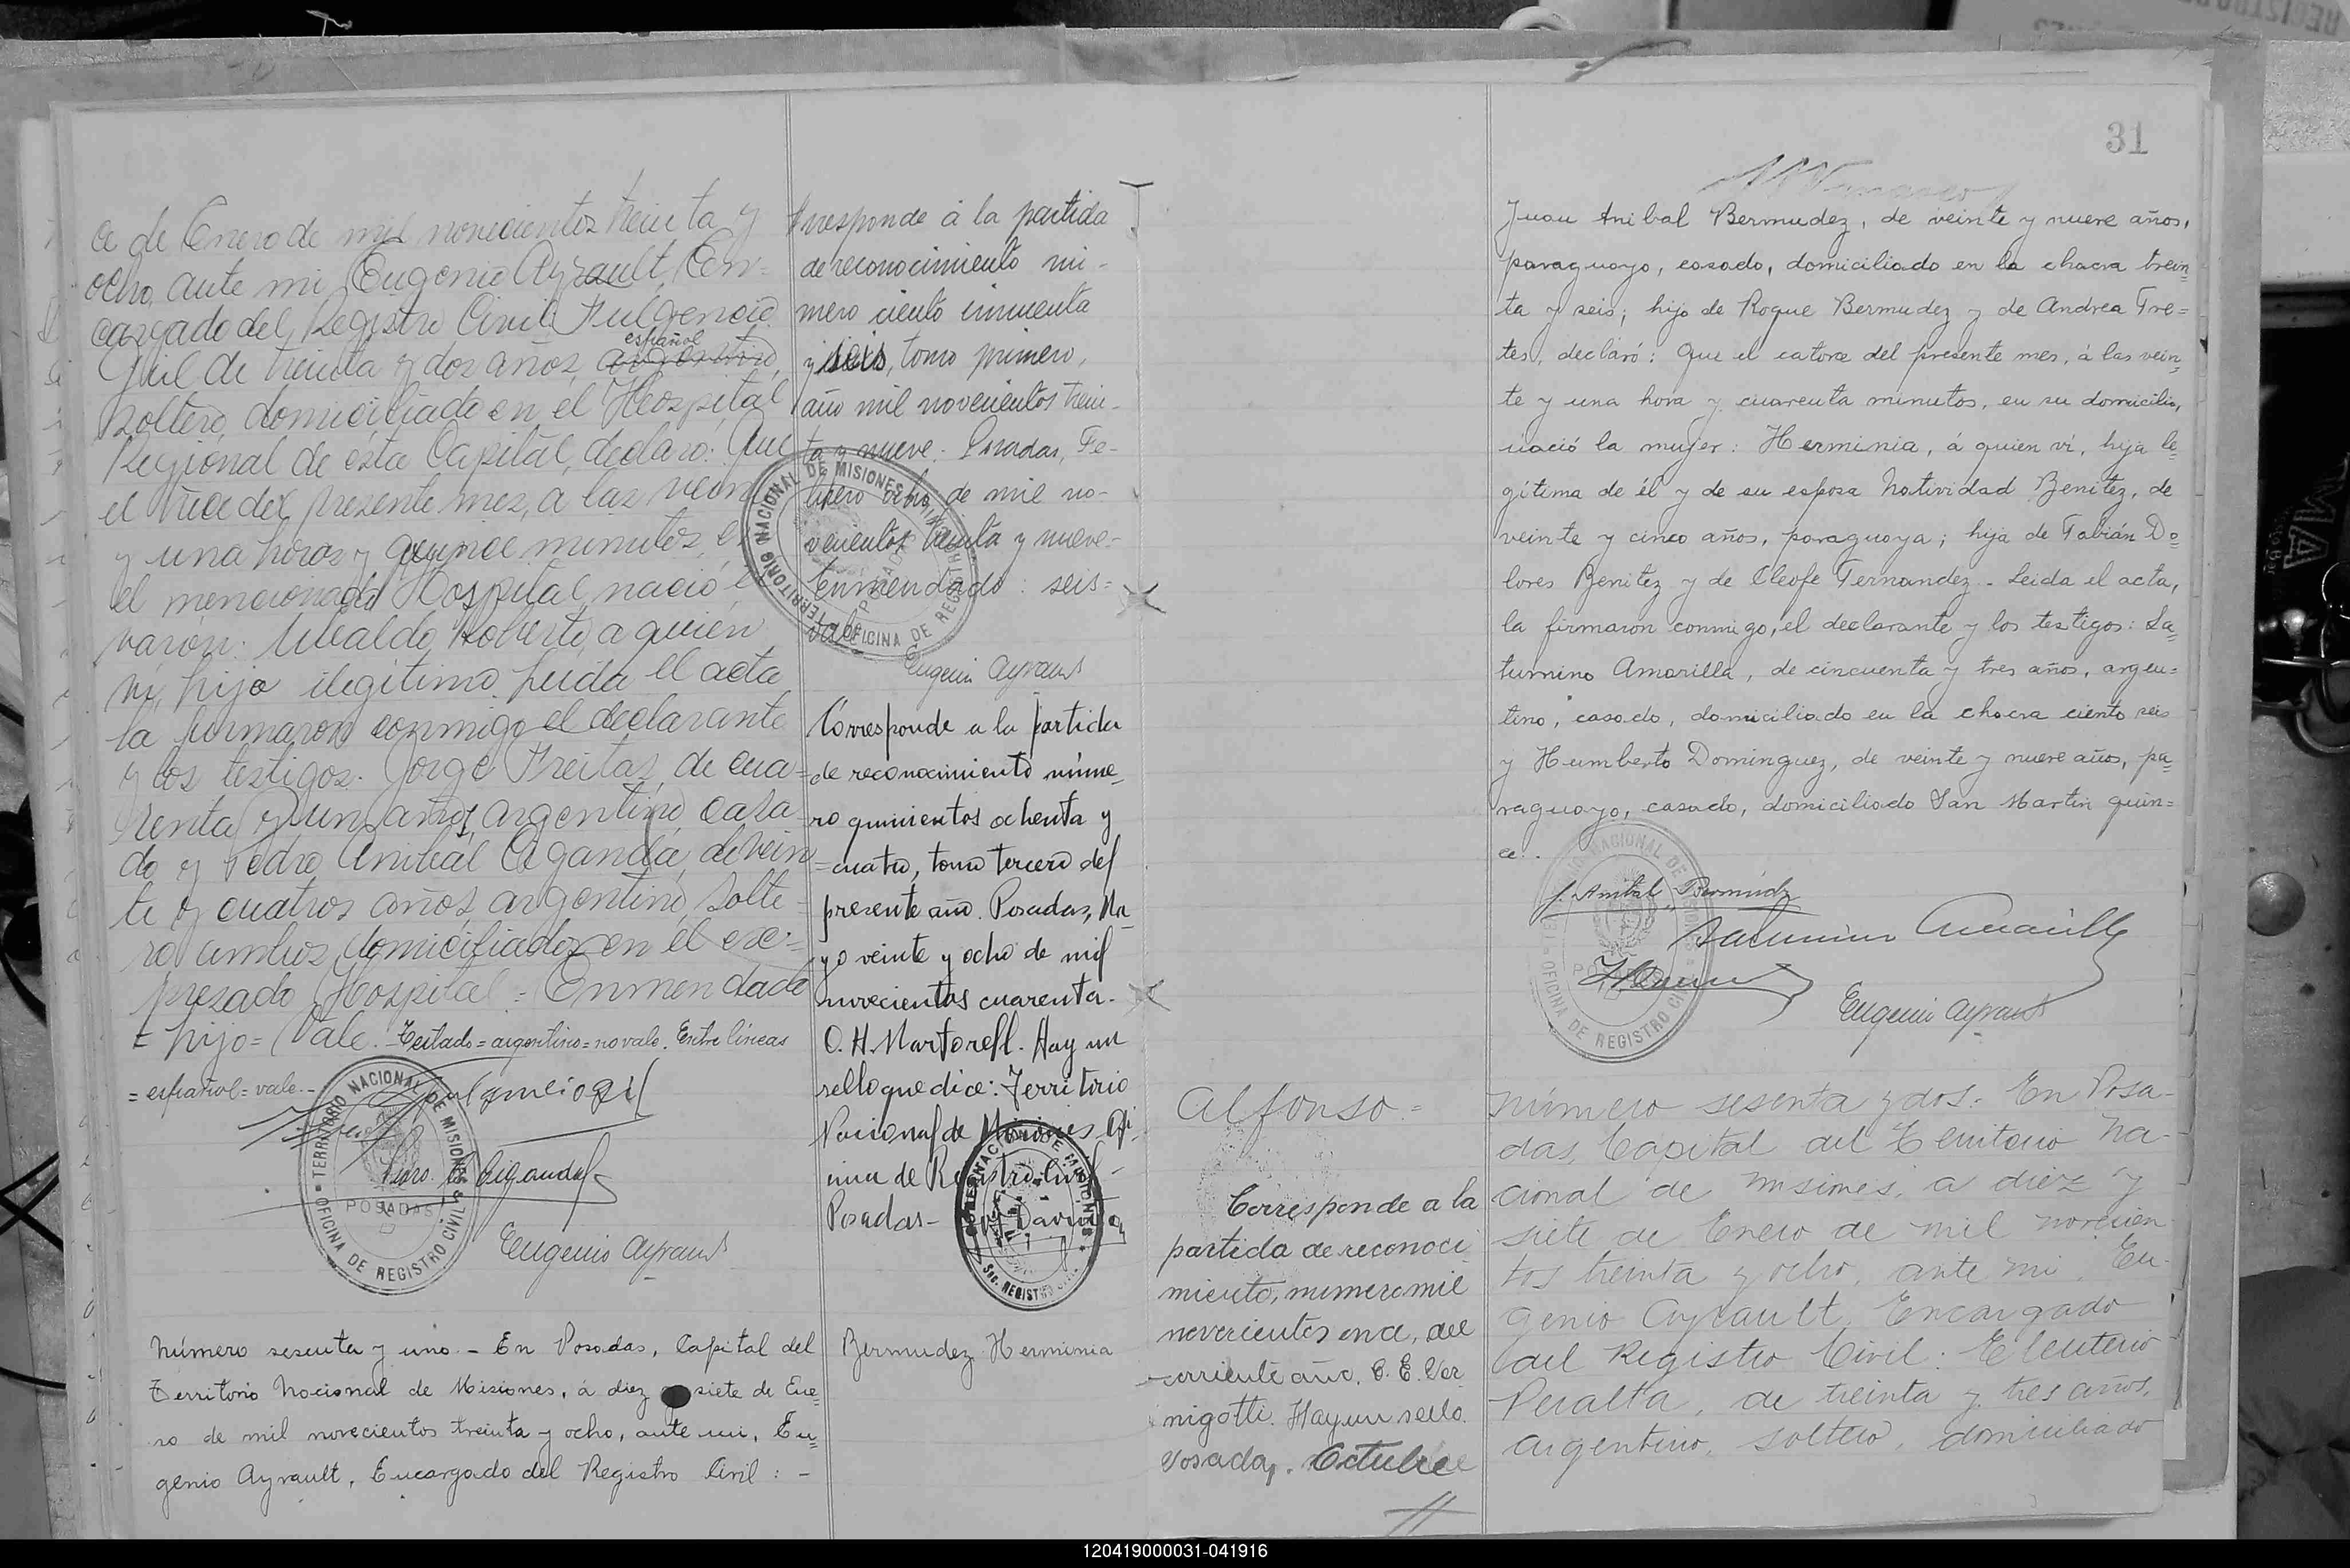 ce de Enero de mil novecientos treinta y
ocho, ante mi Eugenio Ayrault, En=
cargado del Registro Civil Fulgencio
español
Gil de treinta y dos años, argentino,
soltero, domiciliado en el Hospital
Regional de ésta Capital, declaro: Que
el trece del presente mes, a las vein
y una horas y quince minutos, en
el mencionado Hospital, nació el
varón: Ubaldo Roberto, a quien
ví, hijo ilegítimo. Leida el acta
la firmaron conmigo el declarante
y los testigos. Jorge Freitas, de cua=
renta y un años, argentino, casa
do y Pedro Anibal Aganda, de vein
te y cuatros años, argentino, solte
ro ambos domiciliados en el ex=
presado Hospital = Enmendado
= hijo = Vale. Testado = argentino = no vale. Entre líneas
= español = vale. -
Fulgencio Gil
Eugenio Ayrault
TERRITORIO NACIONAL DE MISIONES
POSADAS
OFICINA DE REGISTRO CIVIL
Número sesenta y uno. - En Posadas, Capital del
Territorio Nacional de Misiones, á diez y siete de Ene=
ro de mil novecientos treinta y ocho, ante mi, Eu=
genio Ayrault, Encargado del Registro Civil : -
rresponde á la partida
de reconocimiento nú-
mero ciento cincuenta
y seis, tomo primero,
año mil novecientos trein-
ta y nueve. Posadas, Fe-
brero ocho de mil no-
vecientos treinta y nueve-
Enmendado: seis=
vale
TERRITORIO NACIONAL DE MISIONES
POSADAS
OFICINA DE REGISTRO CIVIL
Eugenio Ayrault
Corresponde a la partida
de reconocimiento núme
ro quinientos ochenta y
cuatro, tomo tercero del
presente año. Posadas, Ma
yo veinte y ocho de mil
novecientos cuarenta.-
O. H. Martorell. Hay un
sello que dice: Territorio
Nacional de Misiones Ofi
cina de Registro Civil -
Posadas-
GOBERNACION DE MISIONES
Sec. REGISTRO CIVIL
Bermudez Herminia
Alfonso =
Corresponde a la
partida de reconoci
miento, numero mil
novecientos once, del
corriente año. C. E. Ver
nigotti. Hay un sello.
Posadas. Octubre
31
Juan Anibal Bermudez, de veinte y nueve años,
paraguayo, casado, domiciliado en la chacra trein
ta y seis; hijo de Roque Bermudez y de Andrea Fre=
tes, declaró: Que el catorce del presente mes, á las vein
te y una hora y cuarenta minutos, en su domicilio,
nació la mujer: Herminia, á quien ví, hija le
gítima de él y de su esposa Natividad Benitez, de
veinte y cinco años, paraguaya; hija de Fabián Do
lores Benitez y de Cleofe Fernandez - Leida el acta,
la firmaron conmigo, el declarante y los testigos: Sa
turnino Amarilla, de cincuenta y tres años, argen=
tino, casado, domiciliado en la chacra ciento seis
y Humberto Dominguez, de veinte y nueve años, pa
raguayo, casado, domiciliado San Martin quin=
ce..
J. Anibal Bermúdez
Saturnino Amarilla
Eugenio Ayrault
TERRITORIO NACIONAL DE MISIONES
POSADAS
OFICINA DE REGISTRO CIVIL
Número sesenta y dos: En Posa-
das, Capital del Territorio Na-
cional de Misiones, a diez y
siete de Enero de mil novecien
tos treinta y ocho, ante mi, Eu-
genio Ayrault, Encargado
del Registro Civil: Eleuterio
Peralta, de treinta y tres años,
argentino, soltero, domiciliado
120419000031-041916